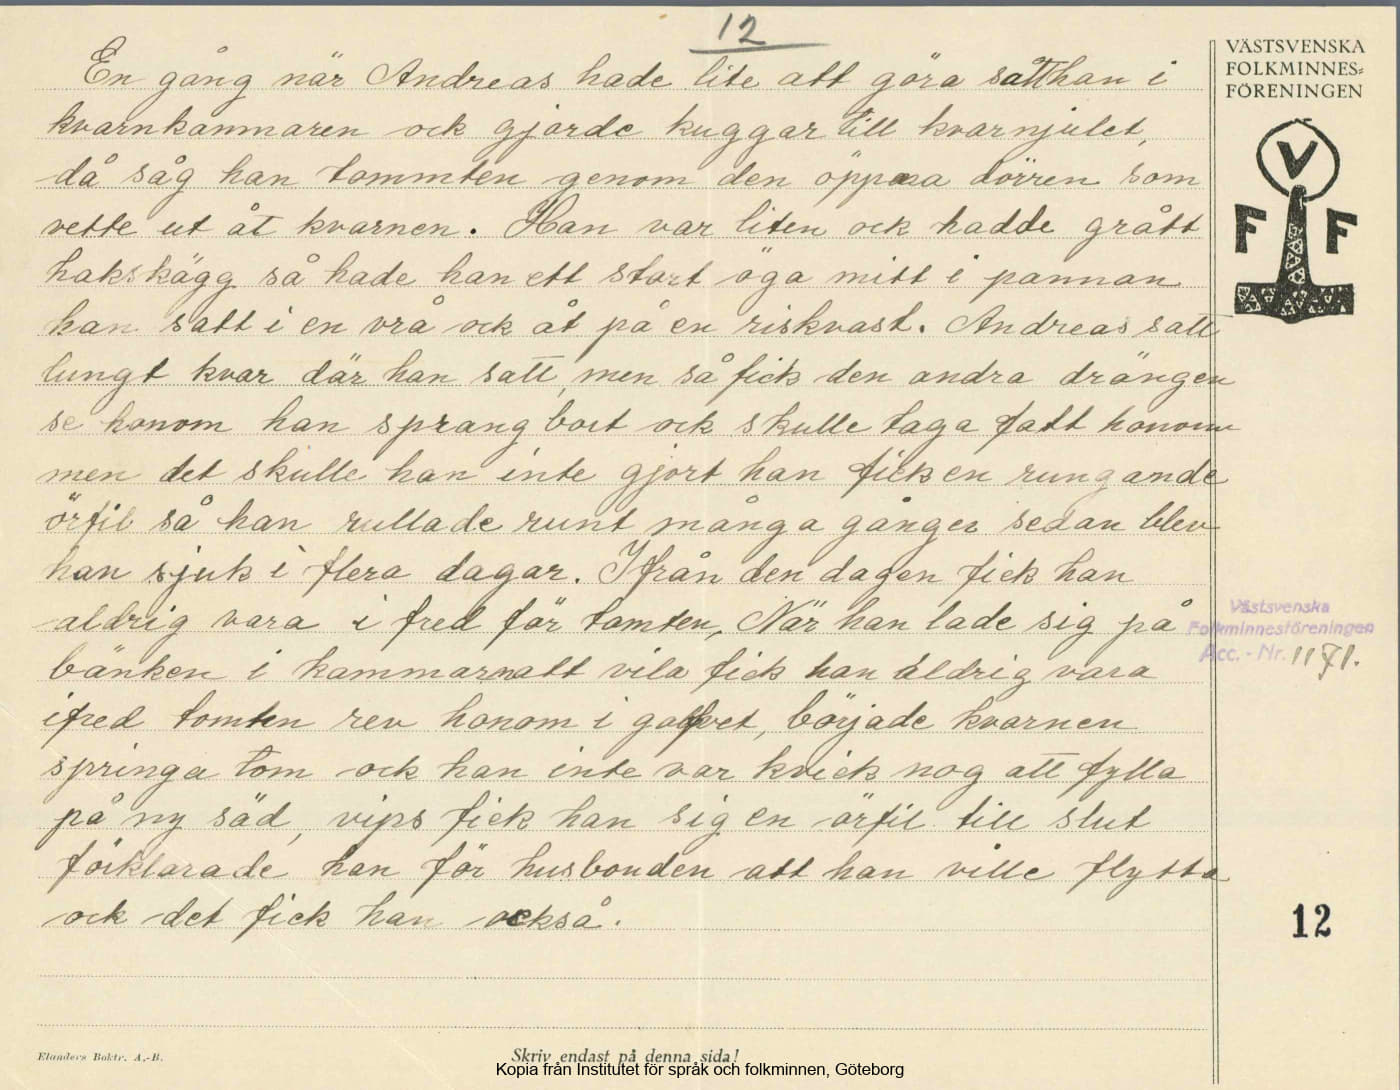 12
En gång när Andreas hade lite att göra satt han i
kvarnkammaren ock gjorde kuggar till kvarnjulet,
då såg han tommten genom den öppna dörren som
vette ut åt kvarnen. Han var liten ock hadde grått
hakskägg så hade han ett stort öga mitt i pannan
han satt i en vrå ock åt på en riskvast. Andreas satt
lungt kvar där han satt, men så fick den andra drängen
se honom han sprang bort ock skulle taga fatt honom
men det skulle han inte gjort han fick en rungande
örfil så han rullade runt många gånger sedan blev
han sjuk i flera dagar. Ifrån den dagen fick han
aldrig vara i fred för tomten, När han lade sig på
bänken i kammarn att vila fick han aldrig vara
ifred tomten rev honom i golfvet, började kvarnen
springa tom ock han inte var kvick nog att fylla
på ny säd, vips fick han sig en örfil till slut
förklarade han för husbonden att han ville flytta
ock det fick han också.
VÄSTSVENSKA
FOLKMINNES=
FÖRENINGEN
V
F F
Västsvenska
Folkminnesföreningen
Acc. - Nr. 1171.
12
Elanders Boktr. A.-B.
Skriv endast på denna sida!
Kopia från Institutet för språk och folkminnen, Göteborg